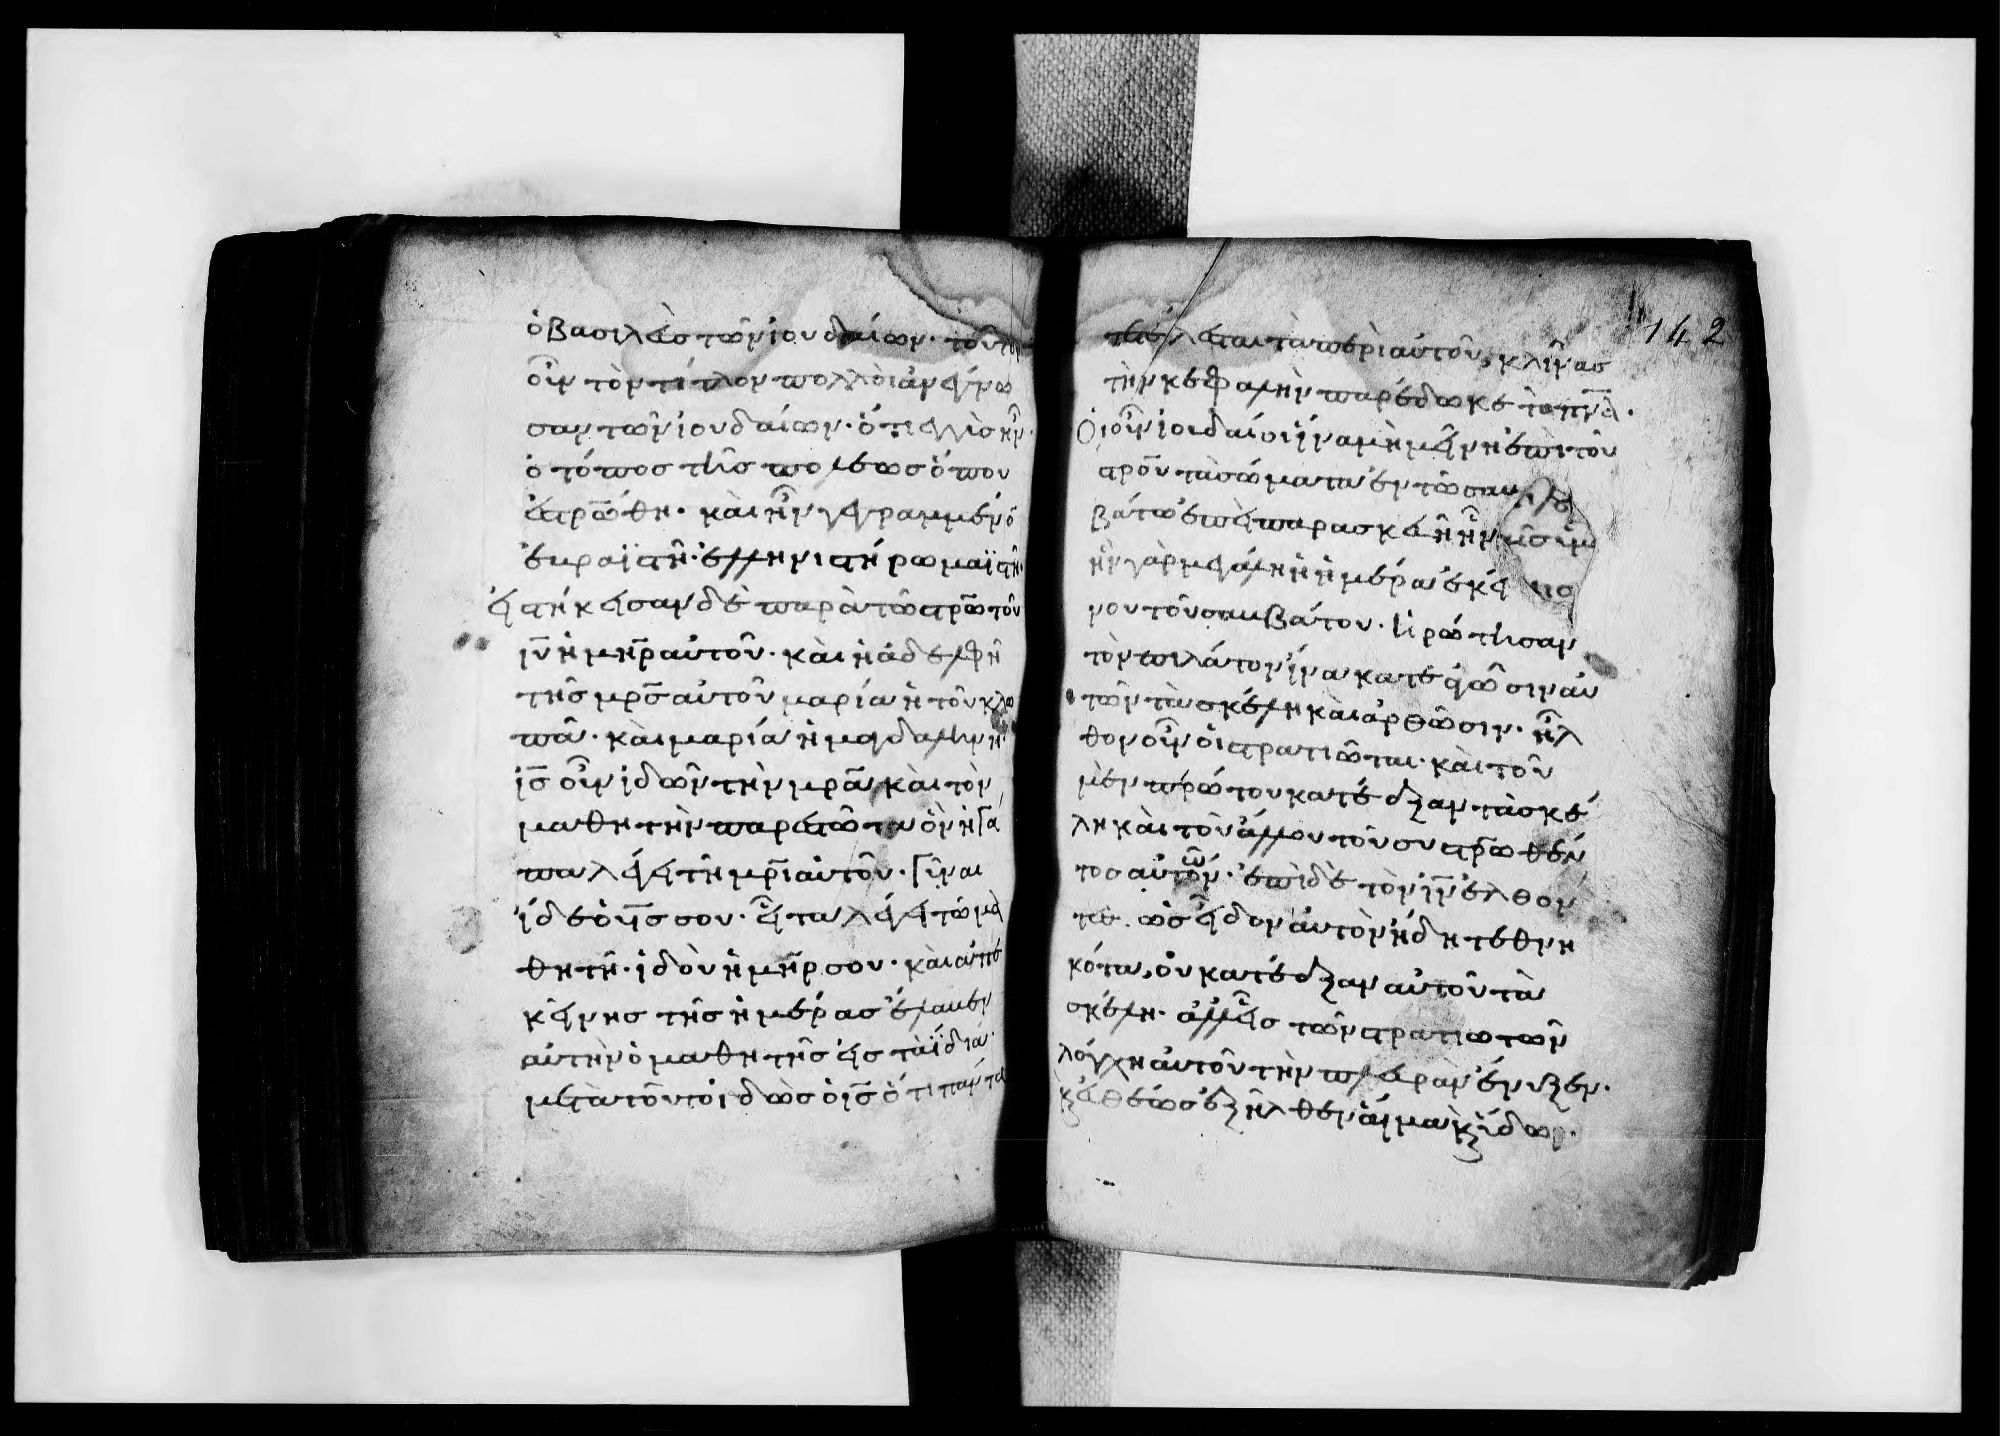 ὁ βασιλεὺς τῶν ἰουδαίων· τοῦτον
οὖν τὸν τίτλον πολλοὶ ἀνέγνω
σαν τῶν ἰουδαίων· ὅτι ἐγγὺς ἦν·
ὁ τόπος τῆς πόλεως ὅπου
ἐστρώθη· καὶ ἦν γεγραμμένο
ἑκραϊστῆ· ἑλληνιστὴ ῥωμαϊστῆ·
εἱστήκεισαν δὲ παρὰ τῶ στρω τοῦ
ιυ ἡ μηρ αὐτοῦ· καὶ ἡ ἀδελφὴ
τῆς μρς αὐτοῦ μαρία ἡ τοῦ κλω
πᾶ· καὶ μαρία ἡ μαγδαληνή·
ις οὖν ἰδὼν τὴν μρα καὶ τὸν
μαθητὴν παρεστῶτα ὃν ἠγά
πα λέγει τῆ μρι αὐτοῦ· γύναι
ἴδε ὁ υς σου· εἶτα λέγει τῶ μα
θητῆ· ἰδοὺ ἡ μηρ σου· καὶ ἀπ ἐ
κείνης τῆς ἡμέρας ἔλαβεν
αὐτὴν ὁ μαθητῆς εἰς τὰ ἴδια·
μετὰ τοῦτο ἰδὼς ὁ ις ὅτι πάντα
142
τετέλεσται τὰ περὶ αὐτοῦ, κλίνας
τὴν κεφαλὴν παρέδωκε τὸ πνα·
Οἱ οὖν ἰουδαίοι ἵνα μὴ μείνη ἐπὶ τοῦ
στροῦ τὰ σώματα ἐν τῶ σαβ
βάτω ἐπεὶ παρασκευὴ ἦν
ἦν γὰρ μεγάλη ἡ ἡμέρα ἐκεί
νου τοῦ σαμβάτου· ἠρώτησαν
τὸν πιλάτον ἵνα κατεάγωσιν αὐ
τῶν τὰ σκέλη καὶ ἀρθῶσιν· ἦλ
θον οὖν οἱ στρατιῶται· καὶ τοῦ
μὲν πρώτου κατέαξαν τὰ σκέ
λη καὶ τοῦ ἄλλου τοῦ συστρωθέν
τος αὐτῶν· ἐπὶ δὲ τὸν ιν ἐλθόν
τες. ὡς εἶδον αὐτὸν ἤδη τεθνη
κότα, οὐ κατέαξαν αὐτοῦ τὰ
σκέλη· ἀλλ εἷς τῶν στρατιωτῶν
λόγχη αὐτοῦ τὴν πλευρὰν ἔνυξεν·
κ εὐθέως ἐξῆλθεν αἷμα κ ὕδωρ·